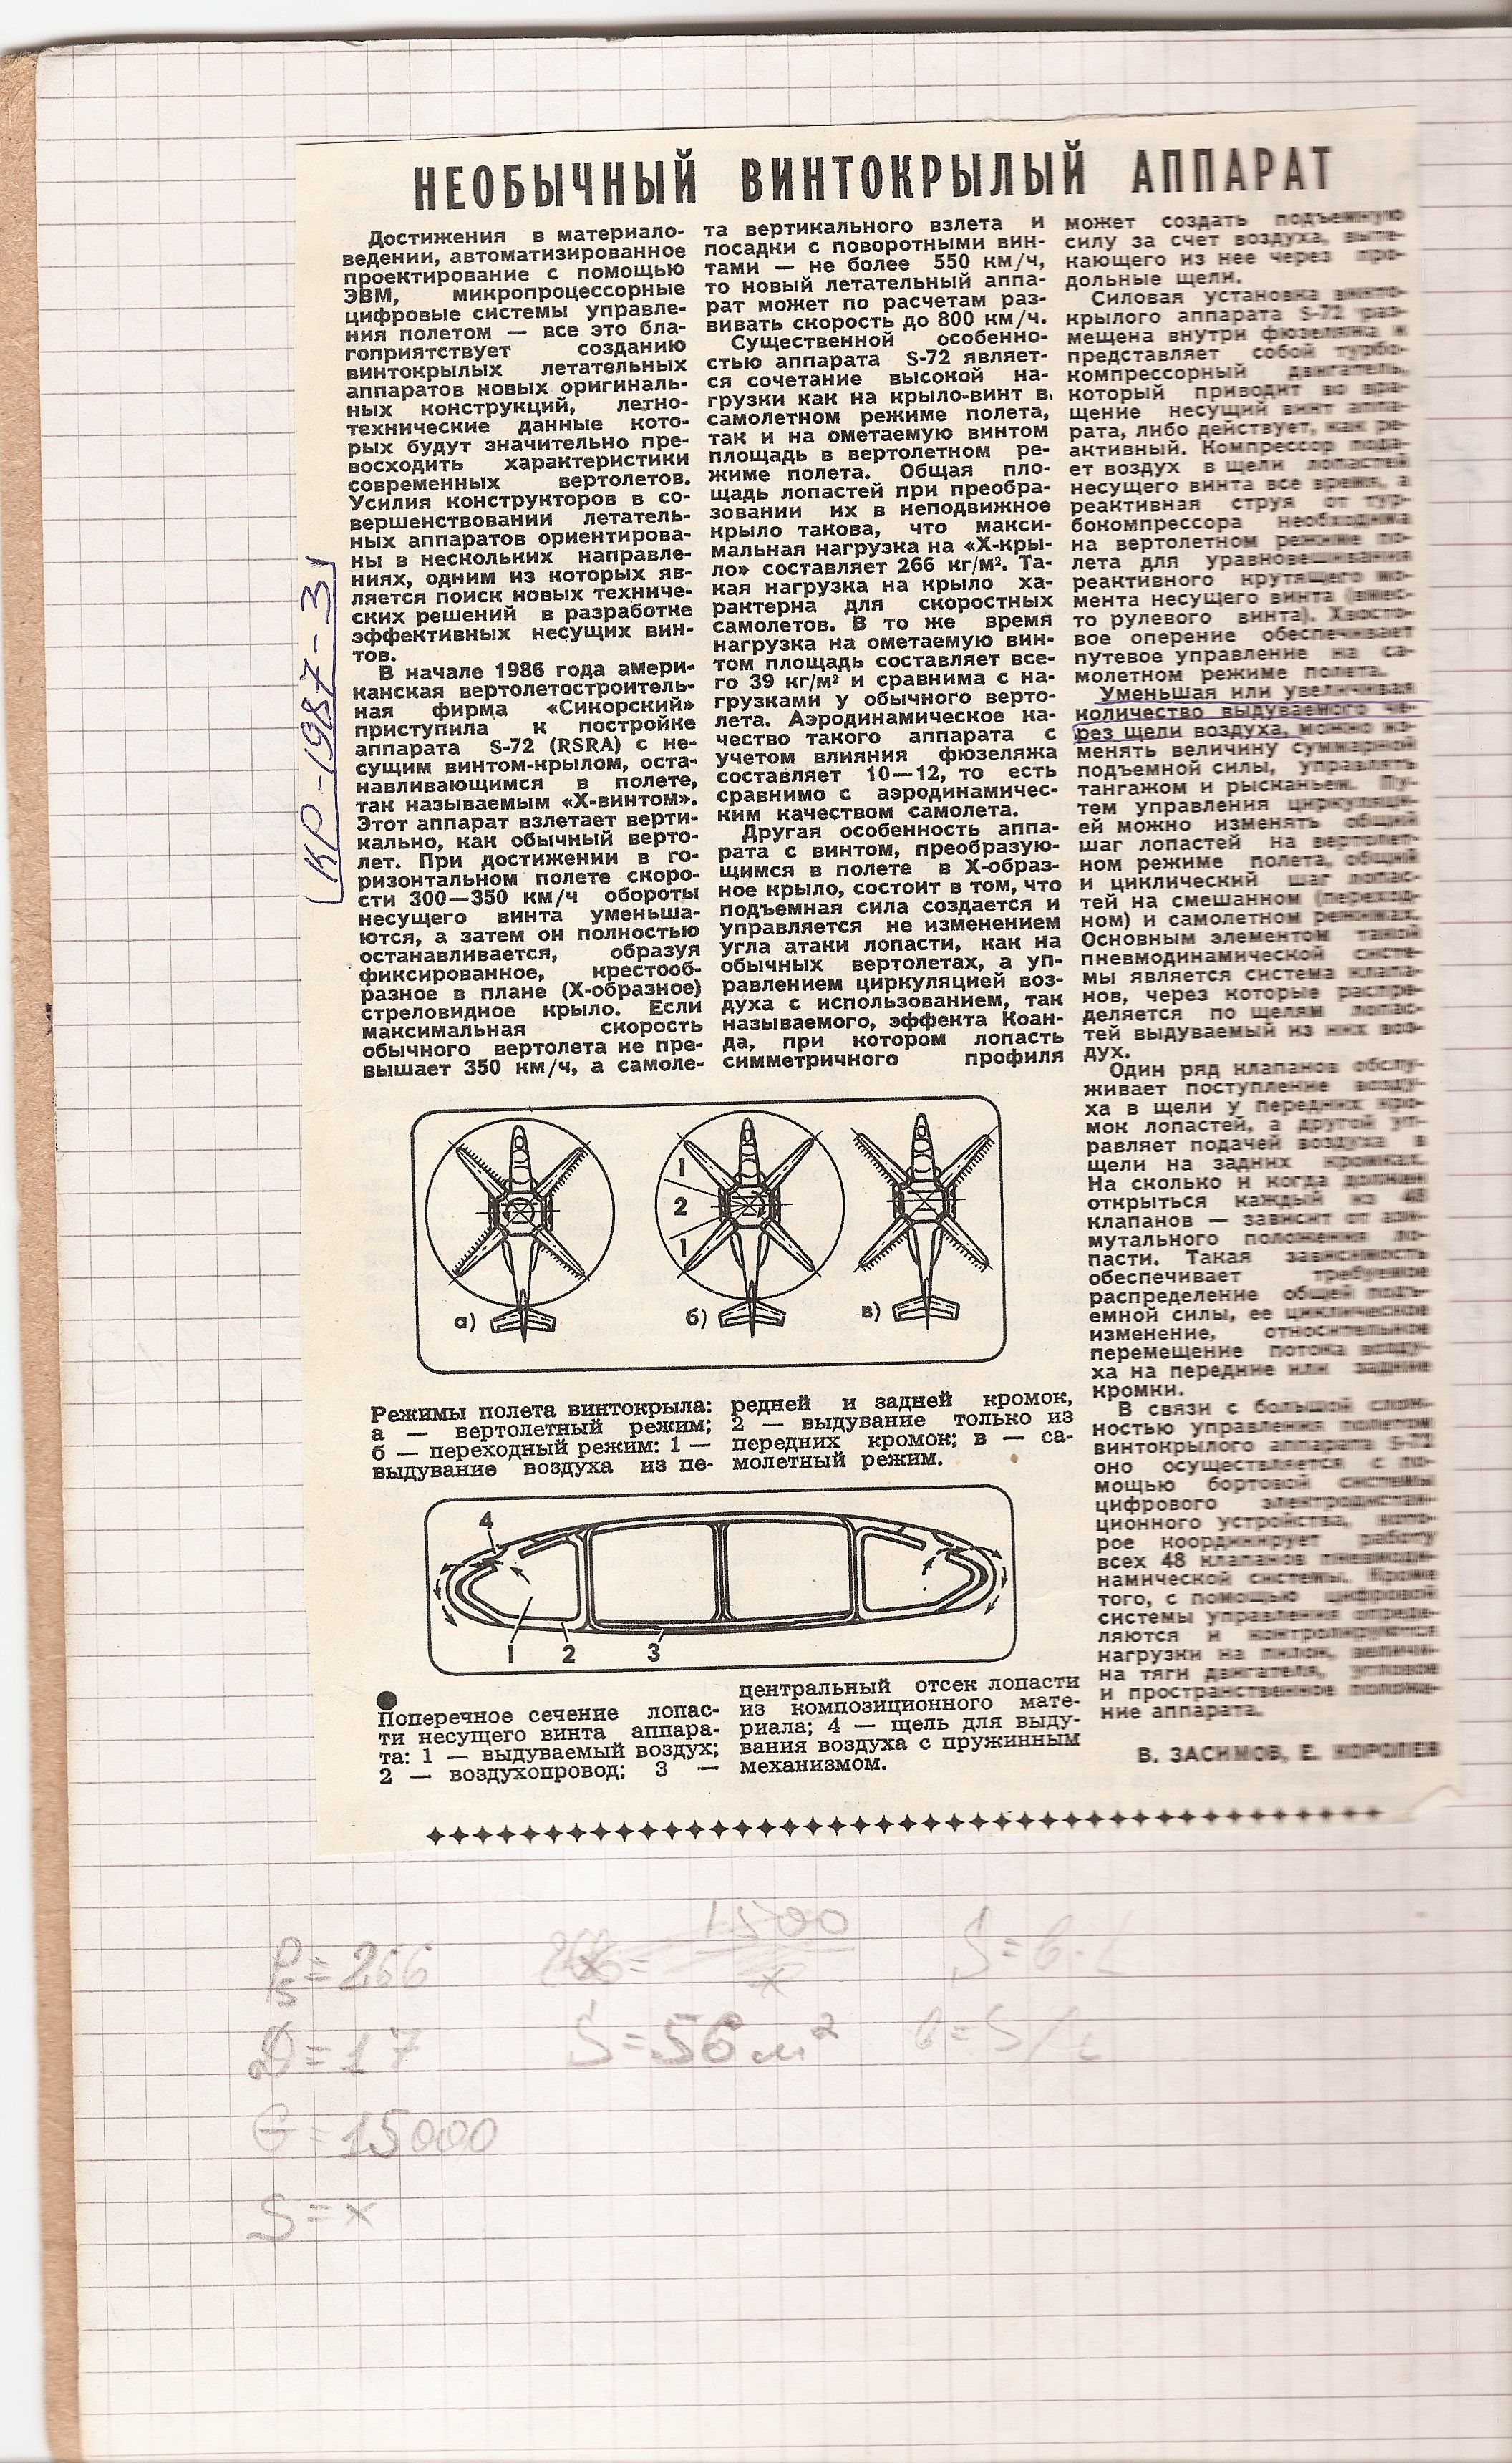 НЕОБЫЧНЫЙ ВИНТОКРЫЛЫЙ АППАРАТ
Достижения в материало-
ведении, автоматизированное
проектирование с помощью
ЭВМ, микропроцессорные
цифровые системы управле-
ния полетом — все это бла-
гоприятствует созданию
винтокрылых летательных
аппаратов новых оригиналь-
ных конструкций, летно-
технические данные кото-
рых будут значительно пре-
восходить характеристики
современных вертолетов.
Усилия конструкторов в со-
вершенствовании летатель-
ных аппаратов ориентирова-
ны в нескольких направле-
ниях, одним из которых яв-
ляется поиск новых техниче-
ских решений в разработке
эффективных несущих вин-
тов.
В начале 1986 года амери-
канская вертолетостроитель-
ная фирма «Сикорский»
приступила к постройке
аппарата S-72 (RSRA) с не-
сущим винтом-крылом, оста-
навливающимся в полете,
так называемым «Х-винтом».
Этот аппарат взлетает верти-
кально, как обычный верто-
лет. При достижении в го-
ризонтальном полете скоро-
сти 300—350 км/ч обороты
несущего винта уменьша-
ются, а затем он полностью
останавливается, образуя
фиксированное, крестооб-
разное в плане (Х-образное)
стреловидное крыло. Если
максимальная скорость
обычного вертолета не пре-
вышает 350 км/ч, а самоле-
та вертикального взлета и
посадки с поворотными вин-
тами — не более 550 км/ч,
то новый летательный аппа-
рат может по расчетам раз-
вивать скорость до 800 км/ч.
Существенной особенно-
стью аппарата S-72 являет-
ся сочетание высокой на-
грузки как на крыло-винт в
самолетном режиме полета,
так и на ометаемую винтом
площадь в вертолетном ре-
жиме полета. Общая пло-
щадь лопастей при преобра-
зовании их в неподвижное
крыло такова, что макси-
мальная нагрузка на «Х-кры-
ло» составляет 266 кг/м². Та-
кая нагрузка на крыло ха-
рактерна для скоростных
самолетов. В то же время
нагрузка на ометаемую вин-
том площадь составляет все-
го 39 кг/м² и сравнима с на-
грузками у обычного верто-
лета. Аэродинамическое ка-
чество такого аппарата с
учетом влияния фюзеляжа
составляет 10—12, то есть
сравнимо с аэродинамичес-
ким качеством самолета.
Другая особенность аппа-
рата с винтом, преобразую-
щимся в полете в Х-образ-
ное крыло, состоит в том, что
подъемная сила создается и
управляется не изменением
угла атаки лопасти, как на
обычных вертолетах, а уп-
равлением циркуляцией воз-
духа с использованием, так
называемого, эффекта Коан-
да, при котором лопасть
симметричного профиля
может создать подъемную
силу за счет воздуха, выте-
кающего из нее через про-
дольные щели.
Силовая установка винто-
крылого аппарата S-72 раз-
мещена внутри фюзеляжа и
представляет собой турбо-
компрессорный двигатель,
который приводит во вра-
щение несущий винт аппа-
рата, либо действует, как ре-
активный. Компрессор пода-
ет воздух в щели лопастей
несущего винта все время, а
реактивная струя от тур-
бокомпрессора необходима
на вертолетном режиме по-
лета для уравновешивания
реактивного крутящего мо-
мента несущего винта (вмес-
то рулевого винта). Хвосто-
вое оперение обеспечивает
путевое управление на са-
молетном режиме полета.
Уменьшая или увеличивая
количество выдуваемого че-
рез щели воздуха, можно из-
менять величину суммарной
подъемной силы, управлять
тангажом и рысканьем. Пу-
тем управления циркуляци-
ей можно изменять общий
шаг лопастей на вертолет-
ном режиме полета, общий
и циклический шаг лопас-
тей на смешанном (переход-
ном) и самолетном режимах.
Основным элементом такой
пневмодинамической систе-
мы является система клапа-
нов, через которые распре-
деляется по щелям лопас-
тей выдуваемый из них воз-
дух.
Один ряд клапанов обслу-
живает поступление возду-
ха в щели у передних кро-
мок лопастей, а другой уп-
равляет подачей воздуха в
щели на задних кромках.
На сколько и когда должен
открыться каждый из 48
клапанов — зависит от ази-
мутального положения ло-
пасти. Такая зависимость
обеспечивает требуемое
распределение общей подъ-
емной силы, ее циклическое
изменение, относительное
перемещение потока возду-
ха на передние или задние
кромки.
В связи с большой слож-
ностью управления полетом
винтокрылого аппарата S-72
оно осуществляется с по-
мощью бортовой системы
цифрового электродистан-
ционного устройства, кото-
рое координирует работу
всех 48 клапанов пневмоди-
намической системы. Кроме
того, с помощью цифровой
системы управления опреде-
ляются и контролируются
нагрузки на пилон, величи-
на тяги двигателя, угловое
и пространственное положе-
ние аппарата.
В. ЗАСИМОВ, Е. КОРОЛЕВ
КР-1987-3
1
2
1
а)
б)
в)
Режимы полета винтокрыла:
а — вертолетный режим;
б — переходный режим: 1 —
выдувание воздуха из пе-
редней и задней кромок,
2 — выдувание только из
передних кромок; в — са-
молетный режим.
4
1
2
3
Поперечное сечение лопас-
ти несущего винта аппара-
та: 1 — выдуваемый воздух;
2 — воздухопровод; 3 —
центральный отсек лопасти
из композиционного мате-
риала; 4 — щель для выду-
вания воздуха с пружинным
механизмом.
P/S = 266
D = 17
G = 15000
S = x
1500
x
S = 56 м²
S = b · L
b = S / L